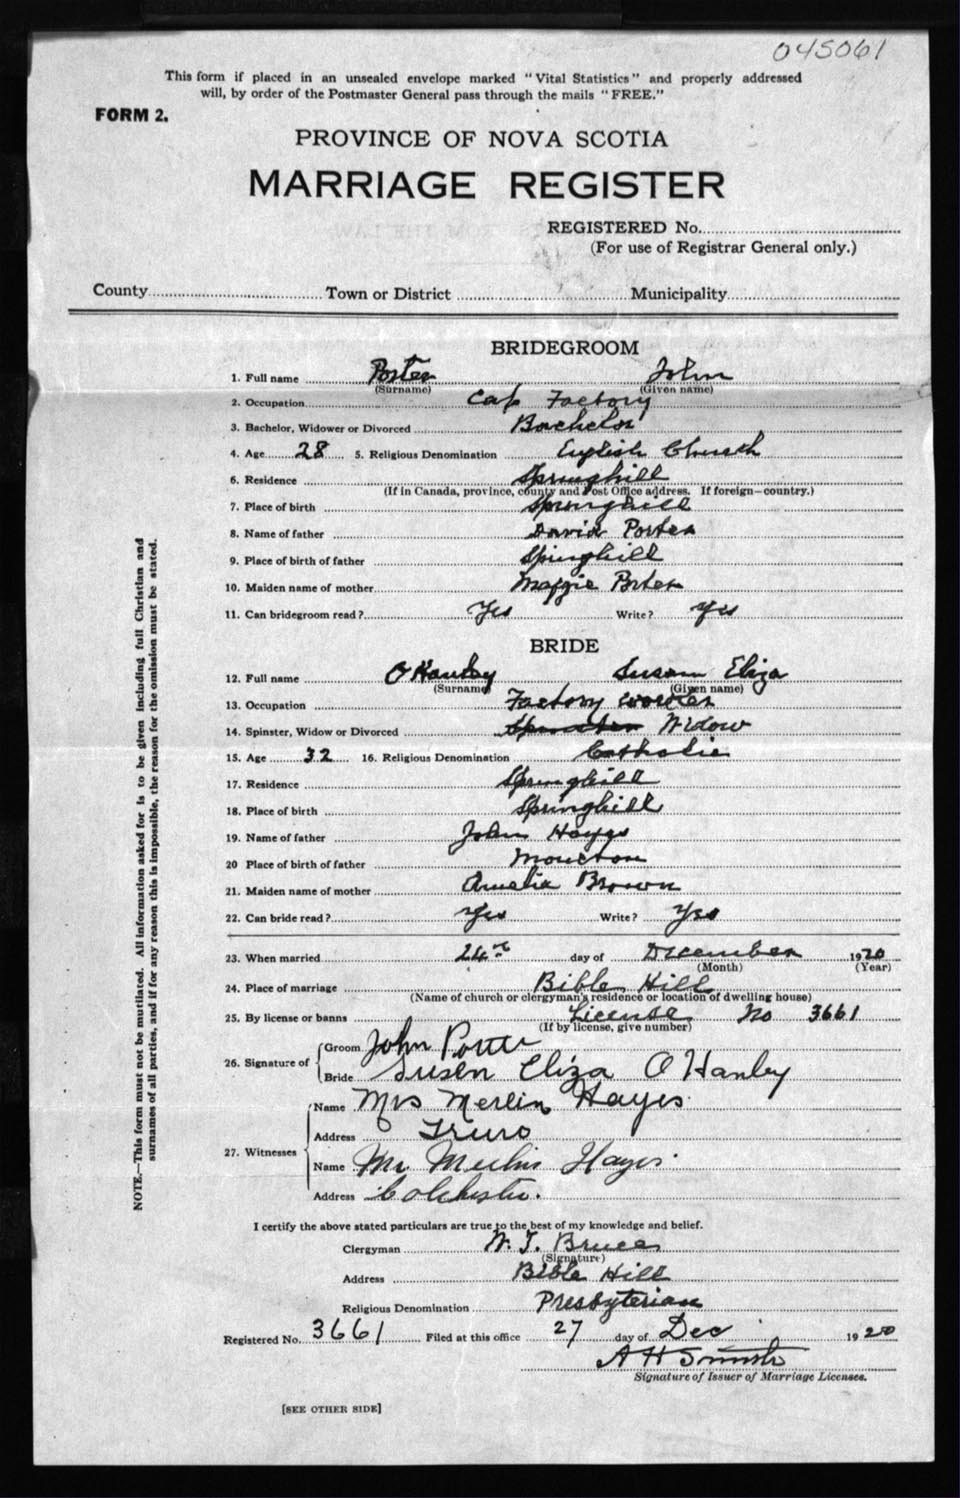 045061
This form if placed in an unsealed envelope marked "Vital Statistics" and properly addressed
will, by order of the Postmaster General pass through the mails "FREE."
FORM 2.
PROVINCE OF NOVA SCOTIA
MARRIAGE REGISTER
REGISTERED No.
(For use of Registrar General only.)
County Town or District Municipality
BRIDEGROOM
1. Full name Porter John
(Surname) (Given name)
2. Occupation Cap Factory
3. Bachelor, Widower or Divorced Bachelor
4. Age 28 5. Religious Denomination English Church
6. Residence Springhill
(If in Canada, province, county and Post Office address. If foreign—country.)
7. Place of birth Springhill
8. Name of father David Porter
9. Place of birth of father Spinghill
10. Maiden name of mother Maggie Porter
11. Can bridegroom read? Yes Write? Yes
BRIDE
12. Full name O Hanley Susan Eliza
(Surname) (Given name)
13. Occupation Factory worker
14. Spinster, Widow or Divorced Spinster Widow
15. Age 32 16. Religious Denomination Catholic
17. Residence Springhill
18. Place of birth Springhill
19. Name of father John Hayes
20 Place of birth of father Moncton
21. Maiden name of mother Amelia Brown
22. Can bride read? Yes Write? Yes
23. When married 24th day of December 1920
(Month) (Year)
24. Place of marriage Bible Hill
(Name of church or clergyman's residence or location of dwelling house)
25. By license or banns License No 3661
(If by license, give number)
26. Signature of Groom John Porter
Bride Susen Eliza O Hanley
27. Witnesses
Name Mrs Merlin Hayes
Address Truro
Name Mr Merlin Hayes
Address Colchester.
I certify the above stated particulars are true to the best of my knowledge and belief.
Clergyman W. T. Bruce
(Signature)
Address Bible Hill
Religious Denomination Presbyterian
Registered No. 3661 Filed at this office 27 day of Dec 1920
A H Smith
Signature of Issuer of Marriage Licenses.
[SEE OTHER SIDE]
NOTE.—This form must not be mutilated. All information asked for is to be given including full Christian and
surnames of all parties, and if for any reason this is impossible, the reason for the omission must be stated.